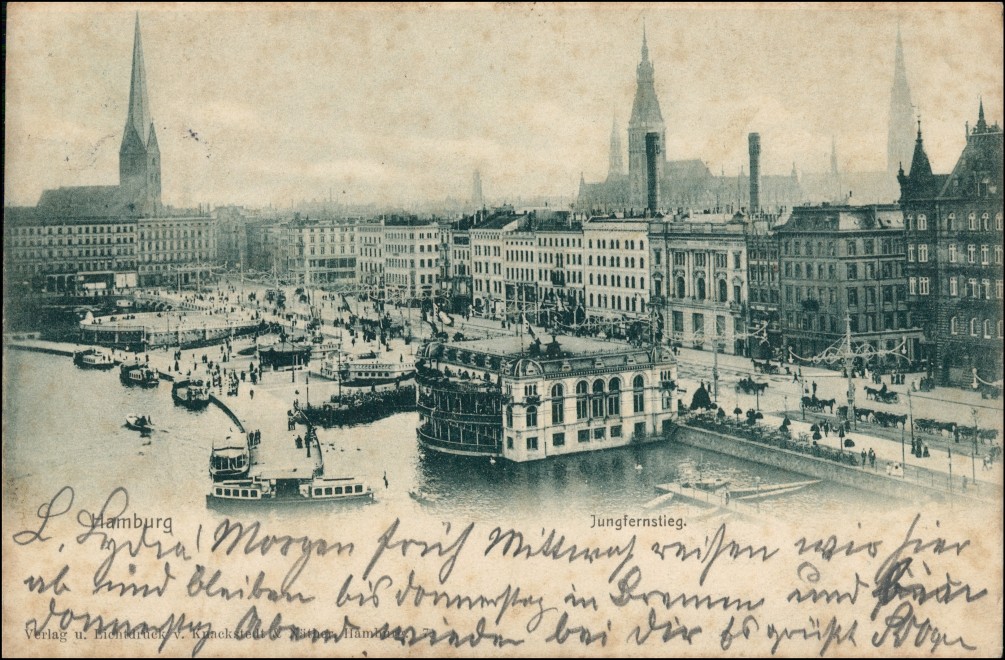 Hamburg
Jungfernstieg.
L. Lydia! Morgen früh Mittwoch reisen wir hier
ab und bleiben bis donnerstag in Bremen und sind
donnerstag Abend wieder bei Dir Es grüßt
Verlag u. Lichtdruck v. Knackstedt & Näther, Hamburg.